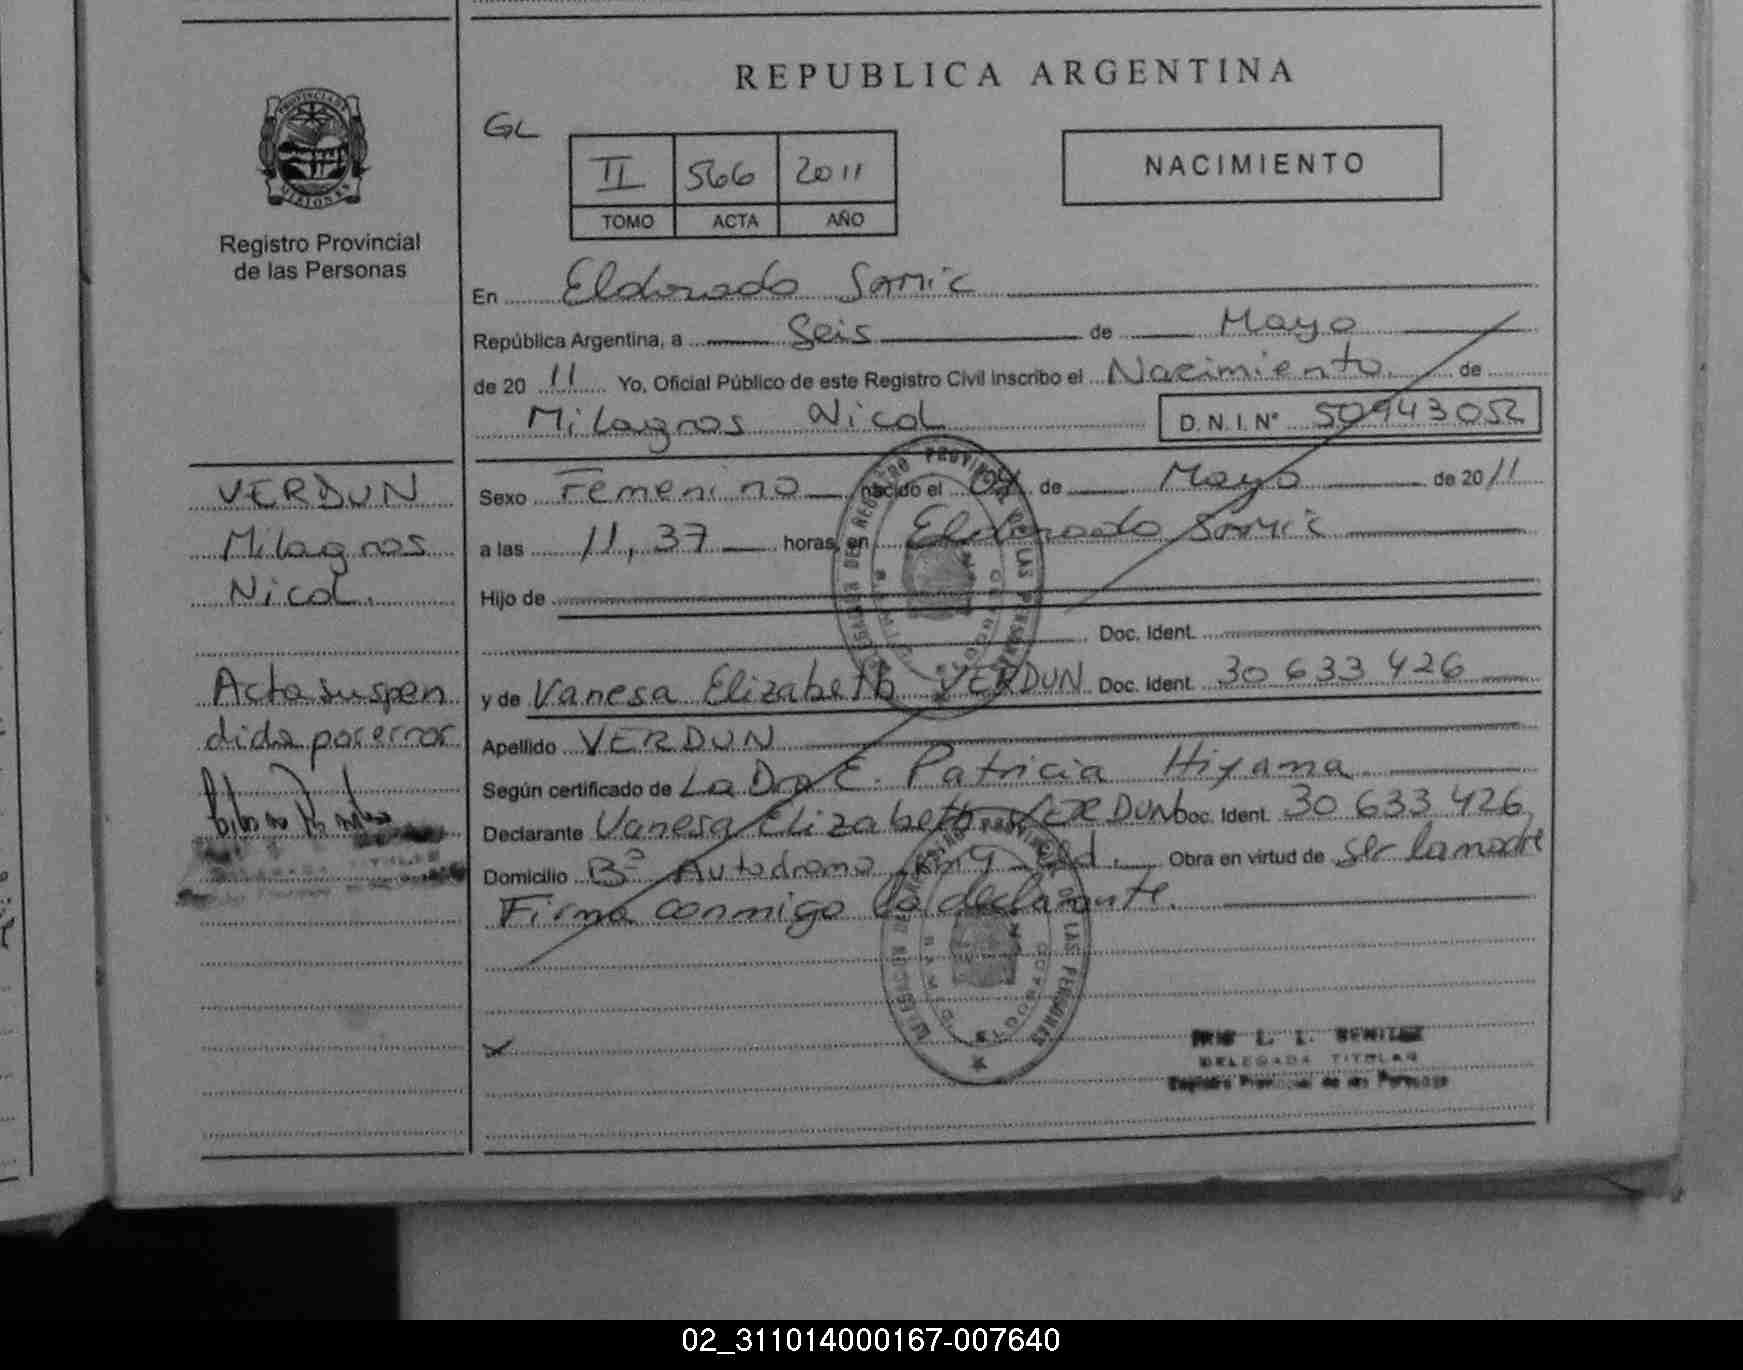 REPUBLICA ARGENTINA
GL
II 566 2011
TOMO ACTA AÑO
NACIMIENTO
PROVINCIA DE
MISIONES
Registro Provincial
de las Personas
En Eldorado Samic
República Argentina, a Seis de Mayo
de 20 11 Yo, Oficial Público de este Registro Civil Inscribo el Nacimiento de
Milagros Nicol D.N.I.Nº 50943052
VERDUN
Milagros
Nicol.
Acta suspen
dida por error
Sexo Femenino nacido el 04 de Mayo de 20 11
a las 11,37 horas, en Eldorado Samic
Hijo de
Doc. Ident.
y de Vanesa Elizabeth VERDUN Doc. Ident. 30 633 426
Apellido VERDUN
Según certificado de La Dra E. Patricia Hiyama
Declarante Vanesa Elizabeth VERDUN Doc. Ident. 30 633 426
Domicilio Bº Autodromo Km 9 Eld. Obra en virtud de ser la madre
Firma conmigo la declarante.
DELEGADA TITULAR
Registro Provincial de las Personas
02_311014000167-007640